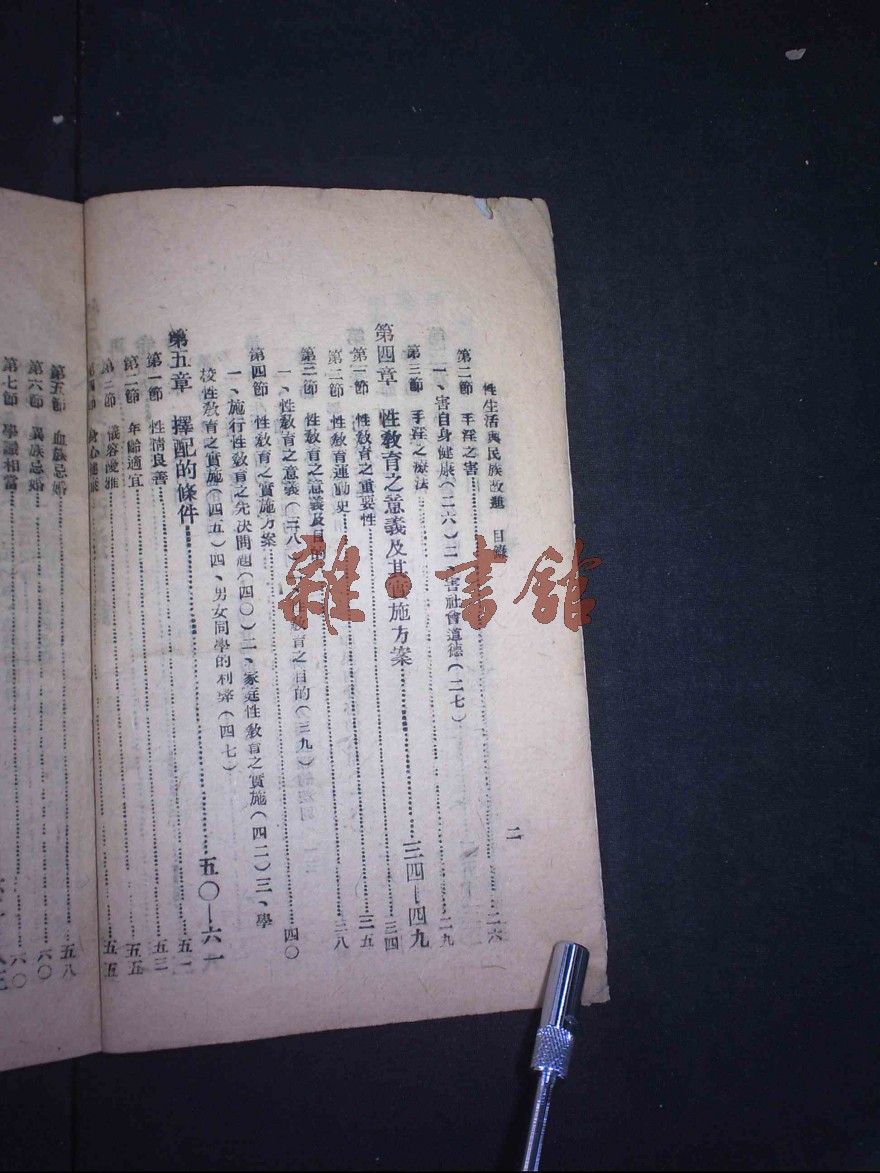 性生活與民族改進　目錄
二
第二節　手淫之害……二六
一、害自身健康(二六)二、害社會道德(二七)
第三節　手淫之療法……二九
第四章　性教育之意義及其實施方案……三四—四九
第一節　性教育之重要性……三四
第二節　性教育運動史……三五
第三節　性教育之意義及目的……三八
一、性教育之意義(三八)二、性教育之目的(三九)
第四節　性教育之實施方案……四〇
一、施行性教育之先決問題(四〇)二、家庭性教育之實施(四二)三、學
校性教育之實施(四五)四、男女同學的利弊(四七)
第五章　擇配的條件……五〇—六一
第一節　性情良善……五二
第二節　年齡適宜……五三
第三節　儀容優雅……五五
第四節　身心健康……五五
第五節　血族忌婚……五八
第六節　異族忌婚……六〇
第七節　學識相當……六〇
雜·書館